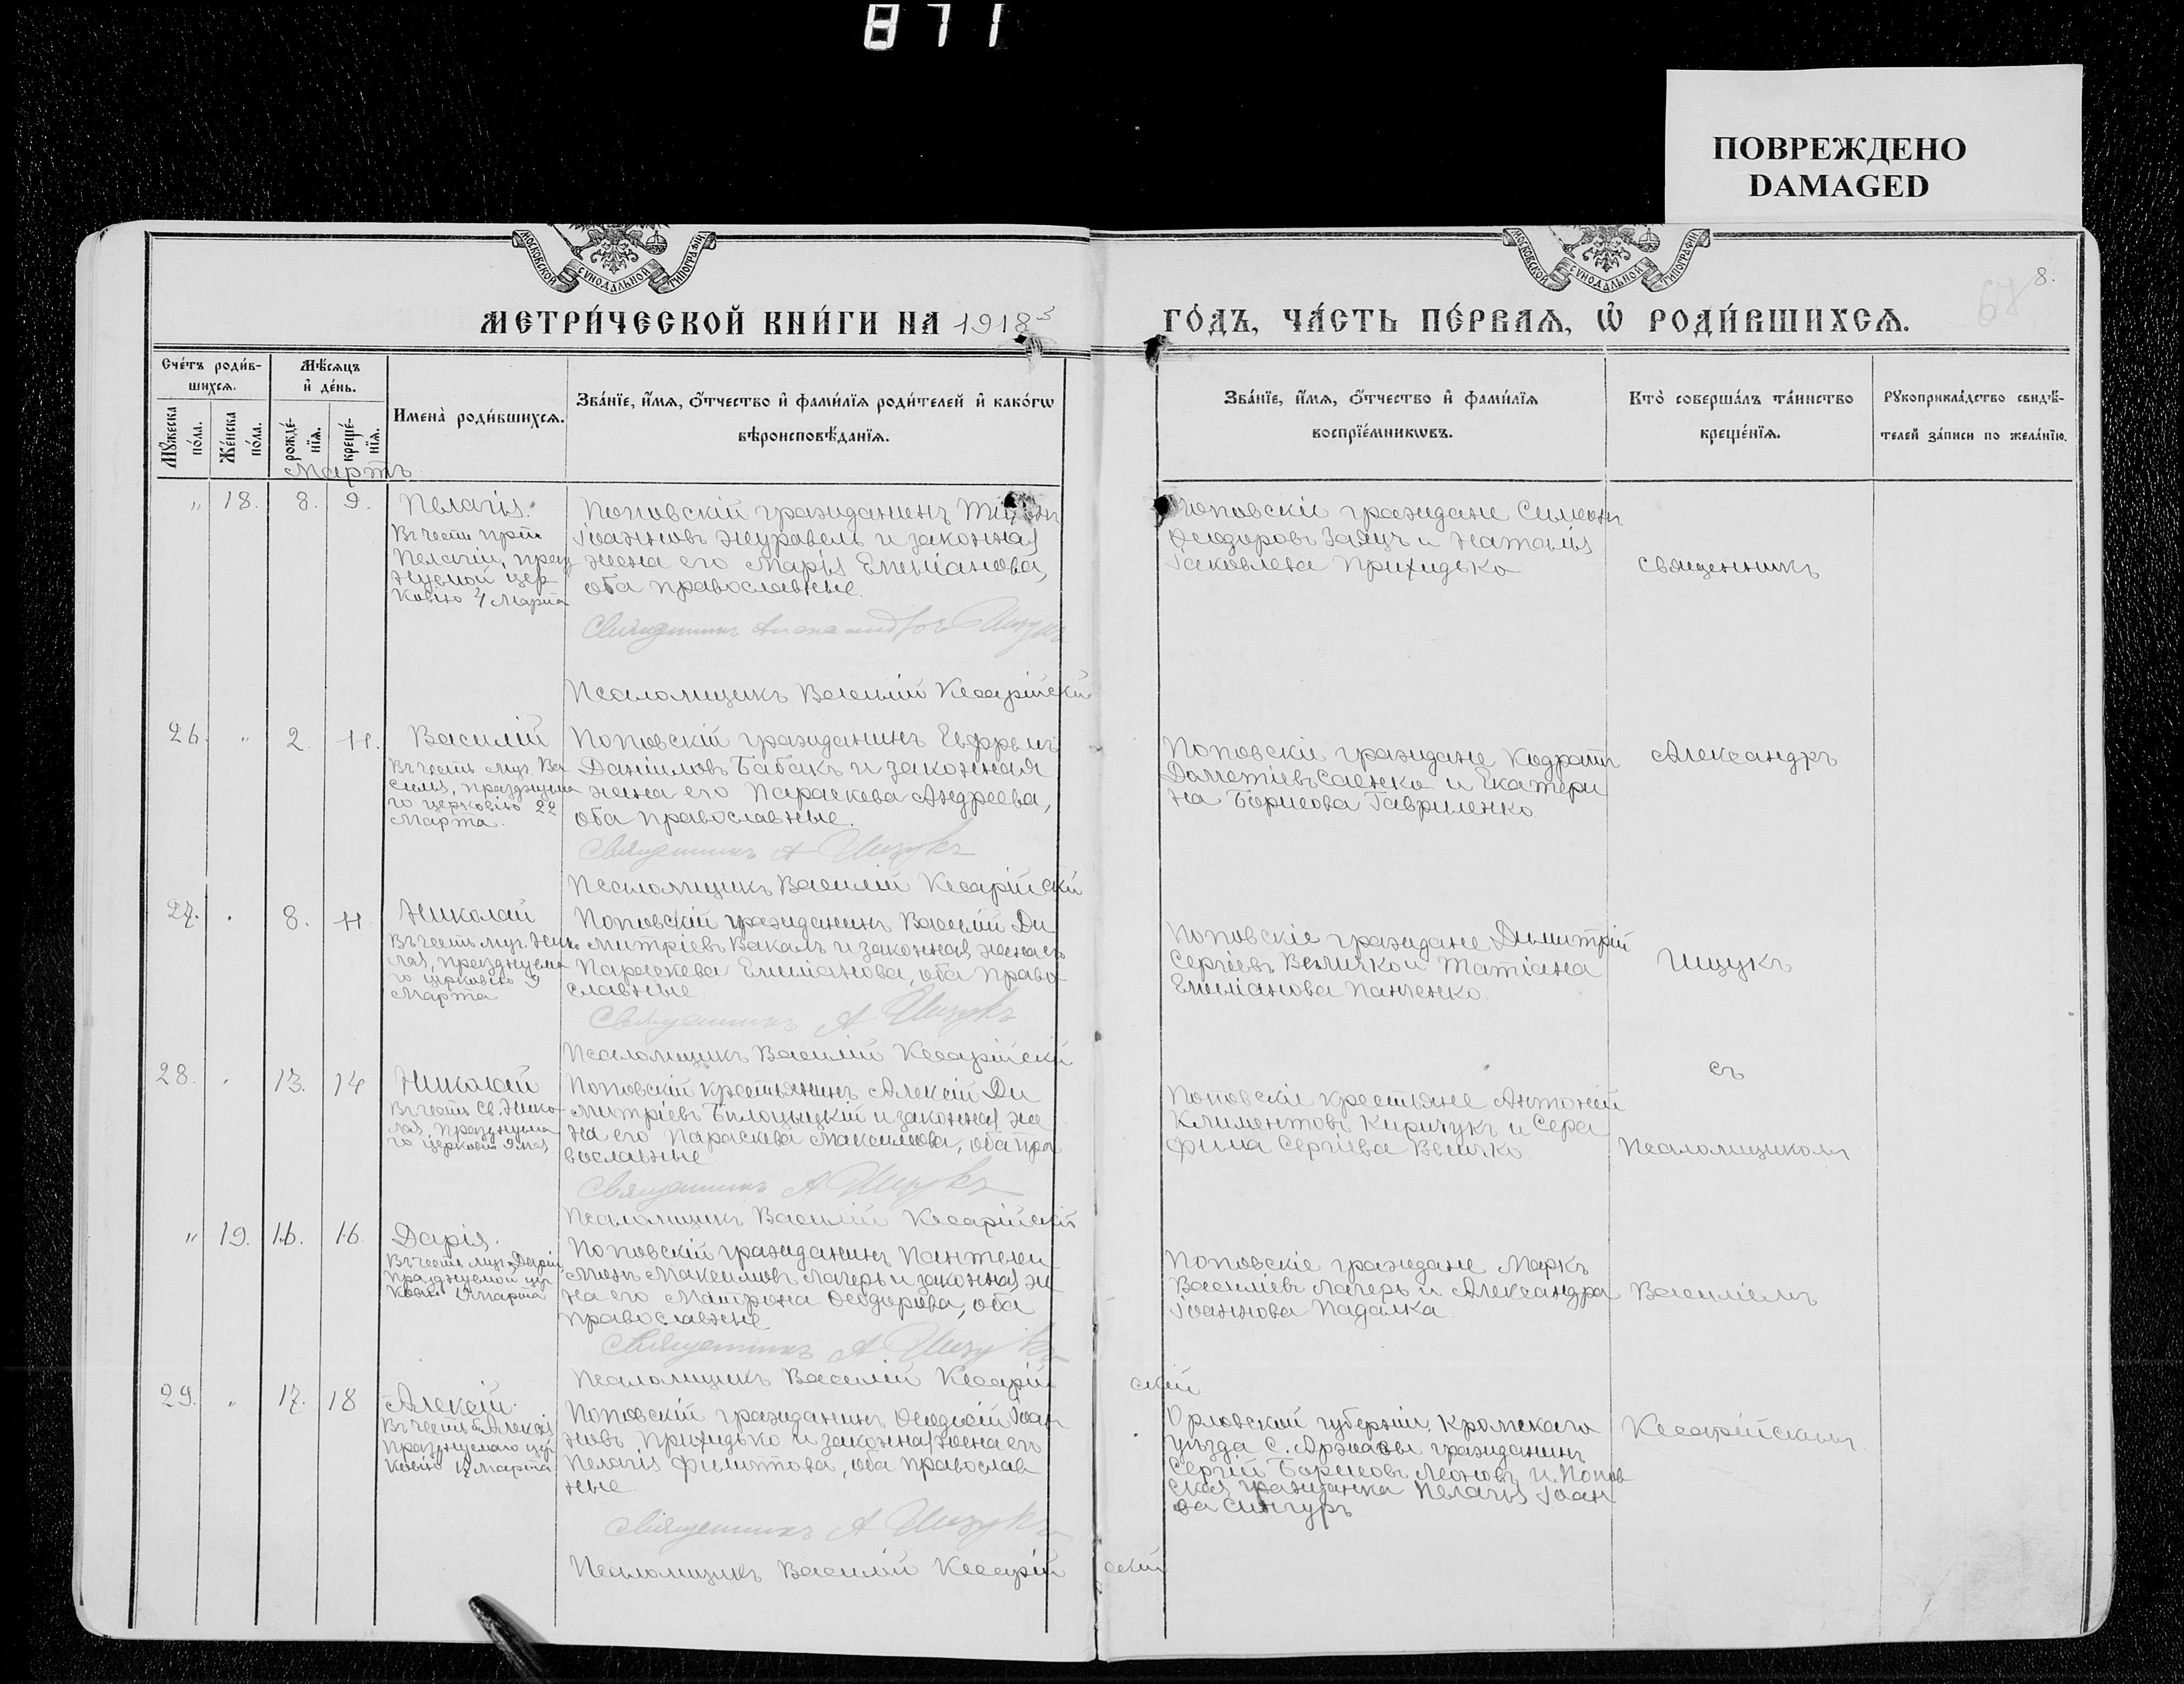 871
ПОВРЕЖДЕНО
DAMAGED
МОСКОВСКОЙ СѴНОДАЛЬНОЙ ТИПОГРАФІИ
МОСКОВСКОЙ СѴНОДАЛЬНОЙ ТИПОГРАФІИ
8.
67
МЕТРИ́ЧЕСКОЙ КНИ́ГИ НА 1918
ГО́ДЪ, ЧА́СТЬ ПЕ́РВАѦ, Ѡ҆ РОДИ́ВШИХСѦ.
Сче́тъ роди́в-
шихсѧ.
Мѣ́сѧцъ
и҆ де́нь.
Мꙋ́жеска по́ла.
Же́нска по́ла.
рожде́-нїѧ.
креще́-нїѧ.
Имена̀ роди́вшихсѧ.
Зва́нїе, и҆́мѧ, ѻ҆́тчество и҆ фами́лїѧ роди́телей и҆ како́гѡ
вѣроисповѣ́данїѧ.
Зва́нїе, и҆́мѧ, ѻ҆́тчество и҆ фами́лїѧ
воспрїе́мникѡвъ.
Кто̀ соверша́лъ та́инство
креще́нїѧ.
Рꙋкоприкла́дство свидѣ́-
телей за́писи по жела́нїю.
Мартъ
" 18. 8. 9. Пелагія.
Въ честь прп
Пелагіи, празд
нуемой цер
ковію 4 Марта
Поповскій гражданинъ
Іоанновъ Журавель и законная
жена его Марія Емиліанова,
оба православные.
Священникъ Александръ Ищукъ
Псаломщикъ Василій Кесарійскій
Поповскіе граждане Симеонъ
Ѳеодоровъ Заяцъ и Наталія
Іаковлева Прихидько
Священникъ
26. " 2. 11. Василій
Въ честь муч. Ва
силія, празднуема
го церковію 22
Марта.
Поповскій гражданинъ Ефремъ
Даніиловъ Бабакъ и законная
жена его Параскева Андреева,
оба православные.
Священникъ А Ищукъ
Псаломщикъ Василій Кесарійскій
Поповскіе граждане Кодратъ
Дометіевъ Саенко и Екатери
на Борисова Гавриленко
Александръ
27. " 8. 11 Николай
Въ честь муч. Нико
лая, празднуема
го церковію 9
Марта
Поповскій гражданинъ Василій Ди
митріевъ Вакалъ и законная жена его
Параскева Емиліанова, оба право
славные
Священникъ А Ищукъ
Псаломщикъ Василій Кесарійскій
Поповскіе граждане Димитрій
Сергіевъ Величко и Татіана
Емиліанова Панченко.
Ищукъ
28. " 13. 14 Николай
Въ честь Св. Нико
лая, празднуема
го церковію 9 мая
Поповскій крестьянинъ Алексій Ди
митріевъ Билоцыцкій и законная же
на его Параскева Максимова, оба пра
вославные
Священникъ А Ищукъ
Псаломщикъ Василій Кесарійскій
съ
Поповскіе крестьяне Антоній
Климентовъ Киричукъ и Сера
фима Сергіева Величко
Псаломщикомъ
" 19. 16. 16. Дарія.
Въ честь муч. Даріи,
празднуемой цер
ковію Марта
Поповскій гражданинъ Пантелеи
монъ Максимовъ Лагерь и законная же
на его Матрона Ѳеодорова, оба
православные
Священникъ А Ищукъ
Псаломщикъ Василій Кесарійскій
Поповскіе граждане Маркъ
Василіевъ Лагерь и Александра
Іоаннова Падалка
Василіемъ
29. " 17. 18 Алексій.
Въ честь Алексія
празднуемаго цер
ковію 17 Марта
Поповскій гражданинъ Ѳеодосій Іоан
новъ Прихидько и законная жена его
Пелагія Филиппова, оба православ
ные.
Священникъ А Ищукъ
Псаломщикъ Василій Кесарійскій
Орловской губерніи, Кромскаго
уѣзда с. гражданинъ
Сергій Борисовъ Леоновъ и Попов
ская гражданка Пелагія Іоан
ва Сингуръ
Кесарійскимъ